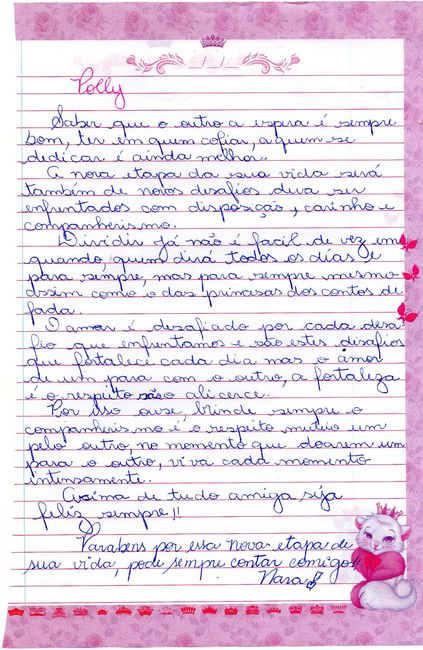 Polly
Saber que o outro a espera é sempre
bom, ter em quem cofiar, a quem se
dedicar é ainda melhor.
A nova etapa da sua vida será
também de novos desafios deva ser
enfrentados com disposição, carinho e
companherismo.
Dividir já não é facil de vez em
quando, quem dirá todos os dias e
para sempre, mas para sempre mesmo
assim como o das princesas dos contos de
fada.
O amor é desafiado por cada desa-
fio que enfrentamos e são estes disafios
que fortalece cada dia mas o amor
de um para com o outro, a fortaleza
é o respeito são alicerce.
Por isso ouse, brinde sempre o
companheirismo é o respeito mutuo um
pelo outro, no momento que doarem um
para o outro, viva cada momento
intensamente.
Acima de tudo amiga seja
feliz sempre!!
Parabens por essa nova etapa de
sua vida, pode sempre contar comigo!!
Nara!